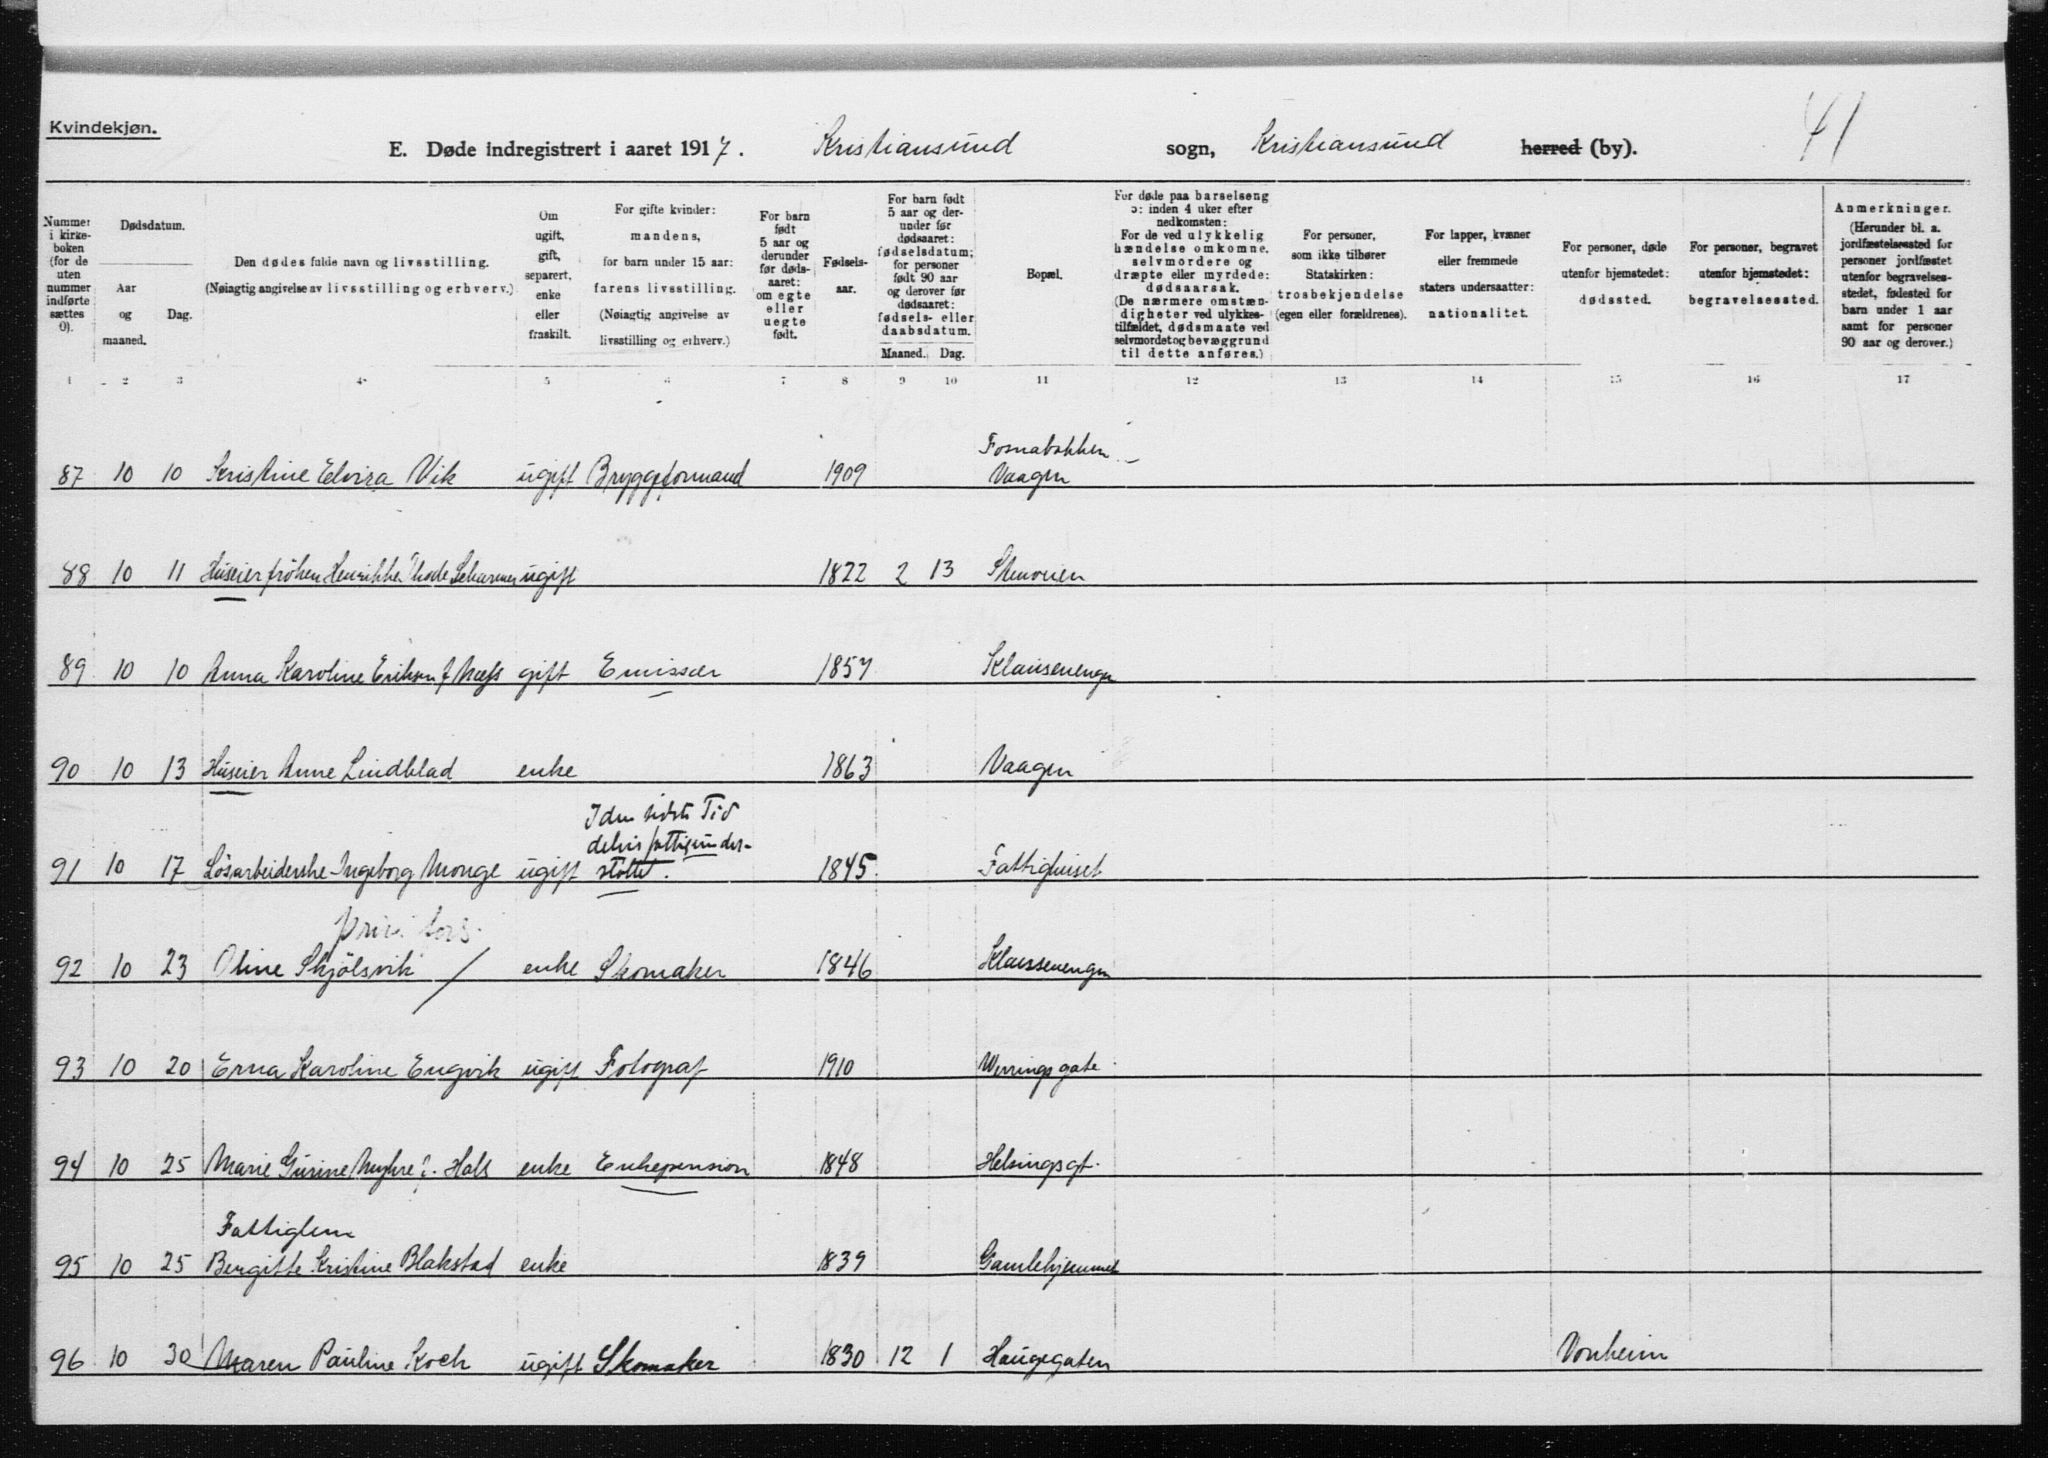 Kvindekjøn.
E. Døde indregistrert i aaret 1917. Kristiansund sogn, Kristiansund herred (by). 41
Nummer i kirkeboken (for de uten nummer indførte sættes 0).
Dødsdatum.
Aar og maaned.
Dag.
Den dødes fulde navn og livsstilling.
(Nøiagtig angivelse av livsstilling og erhverv.)
Om ugift, gift, separert, enke eller fraskilt.
For gifte kvinder: mandens, for barn under 15 aar: farens livsstilling. (Nøiagtig angivelse av livsstilling og erhverv.)
For barn født 5 aar og derunder før dødsaaret: om egte eller uegte født.
Fødselsaar.
For barn født 5 aar og derunder før dødsaaret: fødselsdatum; for personer født 90 aar og derover før dødsaaret: fødsels- eller daabsdatum.
Maaned. Dag.
Bopæl.
For døde paa barselseng ɔ: inden 4 uker efter nedkomsten: For de ved ulykkelig hændelse omkomne, selvmordere og dræpte eller myrdede: dødsaarsak. (De nærmere omstændigheter ved ulykkestilfældet, dødsmaate ved selvmordet og bevæggrund til dette anføres.)
For personer, som ikke tilhører Statskirken: trosbekjendelse (egen eller forældrenes).
For lapper, kvæner eller fremmede staters undersaatter: nationalitet.
For personer, døde utenfor hjemstedet: dødssted.
For personer, begravet utenfor hjemstedet: begravelsessted.
Anmerkninger. (Herunder bl. a. jordfæstelsessted for personer jordfæstet utenfor begravelsesstedet, fødested for barn under 1 aar samt for personer 90 aar og derover.)
1 2 3 4 5 6 7 8 9 10 11 12 13 14 15 16 17
Fosnabakken
87 10 10 Kristine Elvira Vik ugift Bryggeformand 1909 Vaagen
88 10 11 Huseier frøken Henrikke Thode ugift 1822 2 13
89 10 10 Anna Karoline Eriksen f. Næss gift Emissær 1857 Klausenengen
90 10 13 Huseier Anne Lindblad enke 1863 Vaagen
I den sidste Tid
delvis fattigunder-
91 10 17 Løsarbeiderske Ingeborg Monge ugift støttet. 1845 Fattighuset
priv. fors.
92 10 23 Oline Skjölsvik / enke Skomaker 1846 Klaussenengen
93 10 20 Erna Karoline Engvik ugift Fotograf 1910 Werringsgate
94 10 25 Marie Gurine Myhre f. Hals enke Enkepension 1848 Helsingsgt.
Fattiglem
95 10 25 Bergitte Kristine Blakstad enke 1839 Gamlehjemmet
96 10 30 Maren Pauline Koch ugift Skomaker 1830 12 1 Haugegaten Vonheim